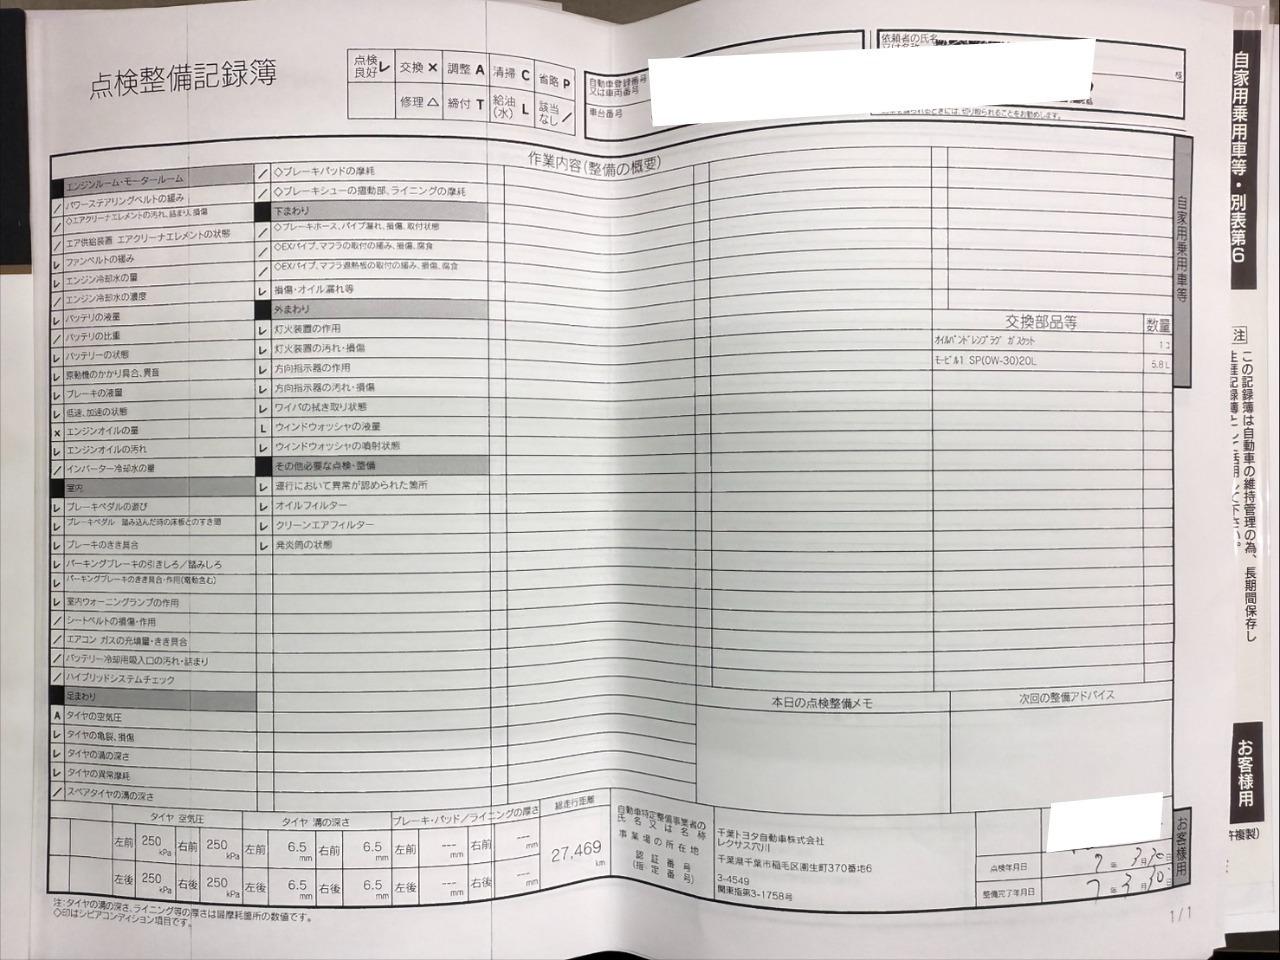 点検整備記録簿
点検良好 レ 交換 × 調整 A 清掃 C 省略 P
修理 △ 締付 T 給油(水) L 該当なし /
自動車登録番号又は車両番号
車台番号
依頼者の氏名
様
作業内容(整備の概要)
エンジンルーム・モータールーム
/ パワーステアリングベルトの緩み
/ ◇エアクリーナエレメントの汚れ、詰まり、損傷
/ エア供給装置 エアクリーナエレメントの状態
レ ファンベルトの緩み
レ エンジン冷却水の量
/ エンジン冷却水の濃度
レ バッテリの液量
/ バッテリの比重
レ バッテリーの状態
レ 原動機のかかり具合、異音
レ ブレーキの液量
レ 低速、加速の状態
× エンジンオイルの量
レ エンジンオイルの汚れ
/ インバーター冷却水の量
室内
レ ブレーキペダルの遊び
レ ブレーキペダル 踏み込んだ時の床板とのすき間
レ ブレーキのきき具合
レ パーキングブレーキの引きしろ/踏みしろ
レ パーキングブレーキのきき具合・作用(電動含む)
レ 室内ウォーニングランプの作用
/ シートベルトの損傷・作用
/ エアコン ガスの充填量・きき具合
/ バッテリー冷却用吸入口の汚れ・詰まり
/ ハイブリッドシステムチェック
足まわり
A タイヤの空気圧
レ タイヤの亀裂、損傷
レ タイヤの溝の深さ
レ タイヤの異常摩耗
/ スペアタイヤの溝の深さ
/ ◇ブレーキパッドの摩耗
/ ◇ブレーキシューの摺動部、ライニングの摩耗
下まわり
/ ◇ブレーキホース、パイプ漏れ、損傷、取付状態
/ ◇EXパイプ、マフラの取付の緩み、損傷、腐食
/ ◇EXパイプ、マフラ遮熱板の取付の緩み、損傷、腐食
レ 損傷・オイル漏れ等
外まわり
レ 灯火装置の作用
レ 灯火装置の汚れ・損傷
レ 方向指示器の作用
レ 方向指示器の汚れ・損傷
レ ワイパの拭き取り状態
L ウインドウォッシャの液量
レ ウインドウォッシャの噴射状態
その他必要な点検・整備
レ 運行において異常が認められた箇所
レ オイルフィルター
レ クリーンエアフィルター
レ 発炎筒の状態
交換部品等 数量
オイルパンドレンプラグ ガスケット 1コ
モービル1 SP(0W-30)20L 5.8L
本日の点検整備メモ
次回の整備アドバイス
タイヤ 空気圧 タイヤ 溝の深さ ブレーキ・パッド/ライニングの厚さ 総走行距離
左前 250 kPa 右前 250 kPa 左前 6.5 mm 右前 6.5 mm 左前 --- mm 右前 --- mm
左後 250 kPa 右後 250 kPa 左後 6.5 mm 右後 6.5 mm 左後 --- mm 右後 --- mm
27,469 km
自動車特定整備事業者の氏名又は名称
事業場の所在地
認証番号(指定番号)
千葉トヨタ自動車株式会社
レクサス穴川
千葉県千葉市稲毛区園生町370番地6
3-4549
関東指第3-1758号
点検年月日 7年3月30日
整備完了年月日 7年3月30日
注:タイヤの溝の深さ、ライニング等の厚さは最摩耗箇所の数値です。
◇印はシビアコンディション項目です。
1/1
自家用乗用車等
お客様用
自家用乗用車等・別表第6
注
この記録簿は自動車の維持管理の為、長期間保存し
お客様用